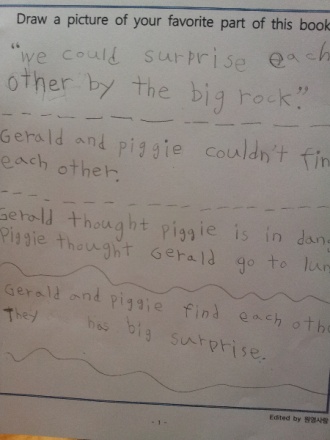 Draw a picture of your favorite part of this book
"we could surprise each
other by the big rock."
Gerald and piggie couldn't fin
each other.
Gerald thought piggie is in dan
Piggie thought Gerald go to lun
Gerald and piggie find each oth
They has big surprise.
- 1 -
Edited by 원영사랑